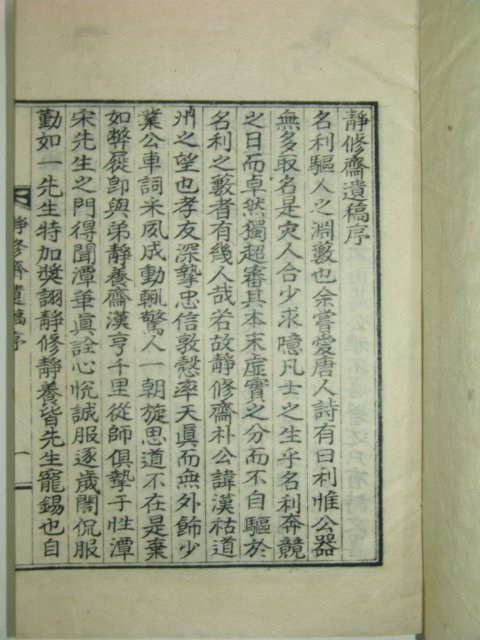 靜修齋遺稿序
名利驅人之淵藪也余嘗愛唐人詩有曰利惟公器
無多取名是灾人合少求噫凡士之生乎名利奔競
之日而卓然獨超審其本末虛實之分而不自驅於
名利之藪者有幾人哉若故靜修齋朴公諱漢枯道
州之望也孝友深摯忠信敦慤率天眞而無外飾少
業公車詞采夙成動輒驚人一朝旋思道不在是棄
如弊屣卽與弟靜養齋漢亨千里從師俱摯于性潭
宋先生之門得聞潭華眞詮心悅誠服逐歲誾侃服
勤如一先生特加奬詡靜修靜養皆先生寵錫也自
靜修齋遺稿序
一